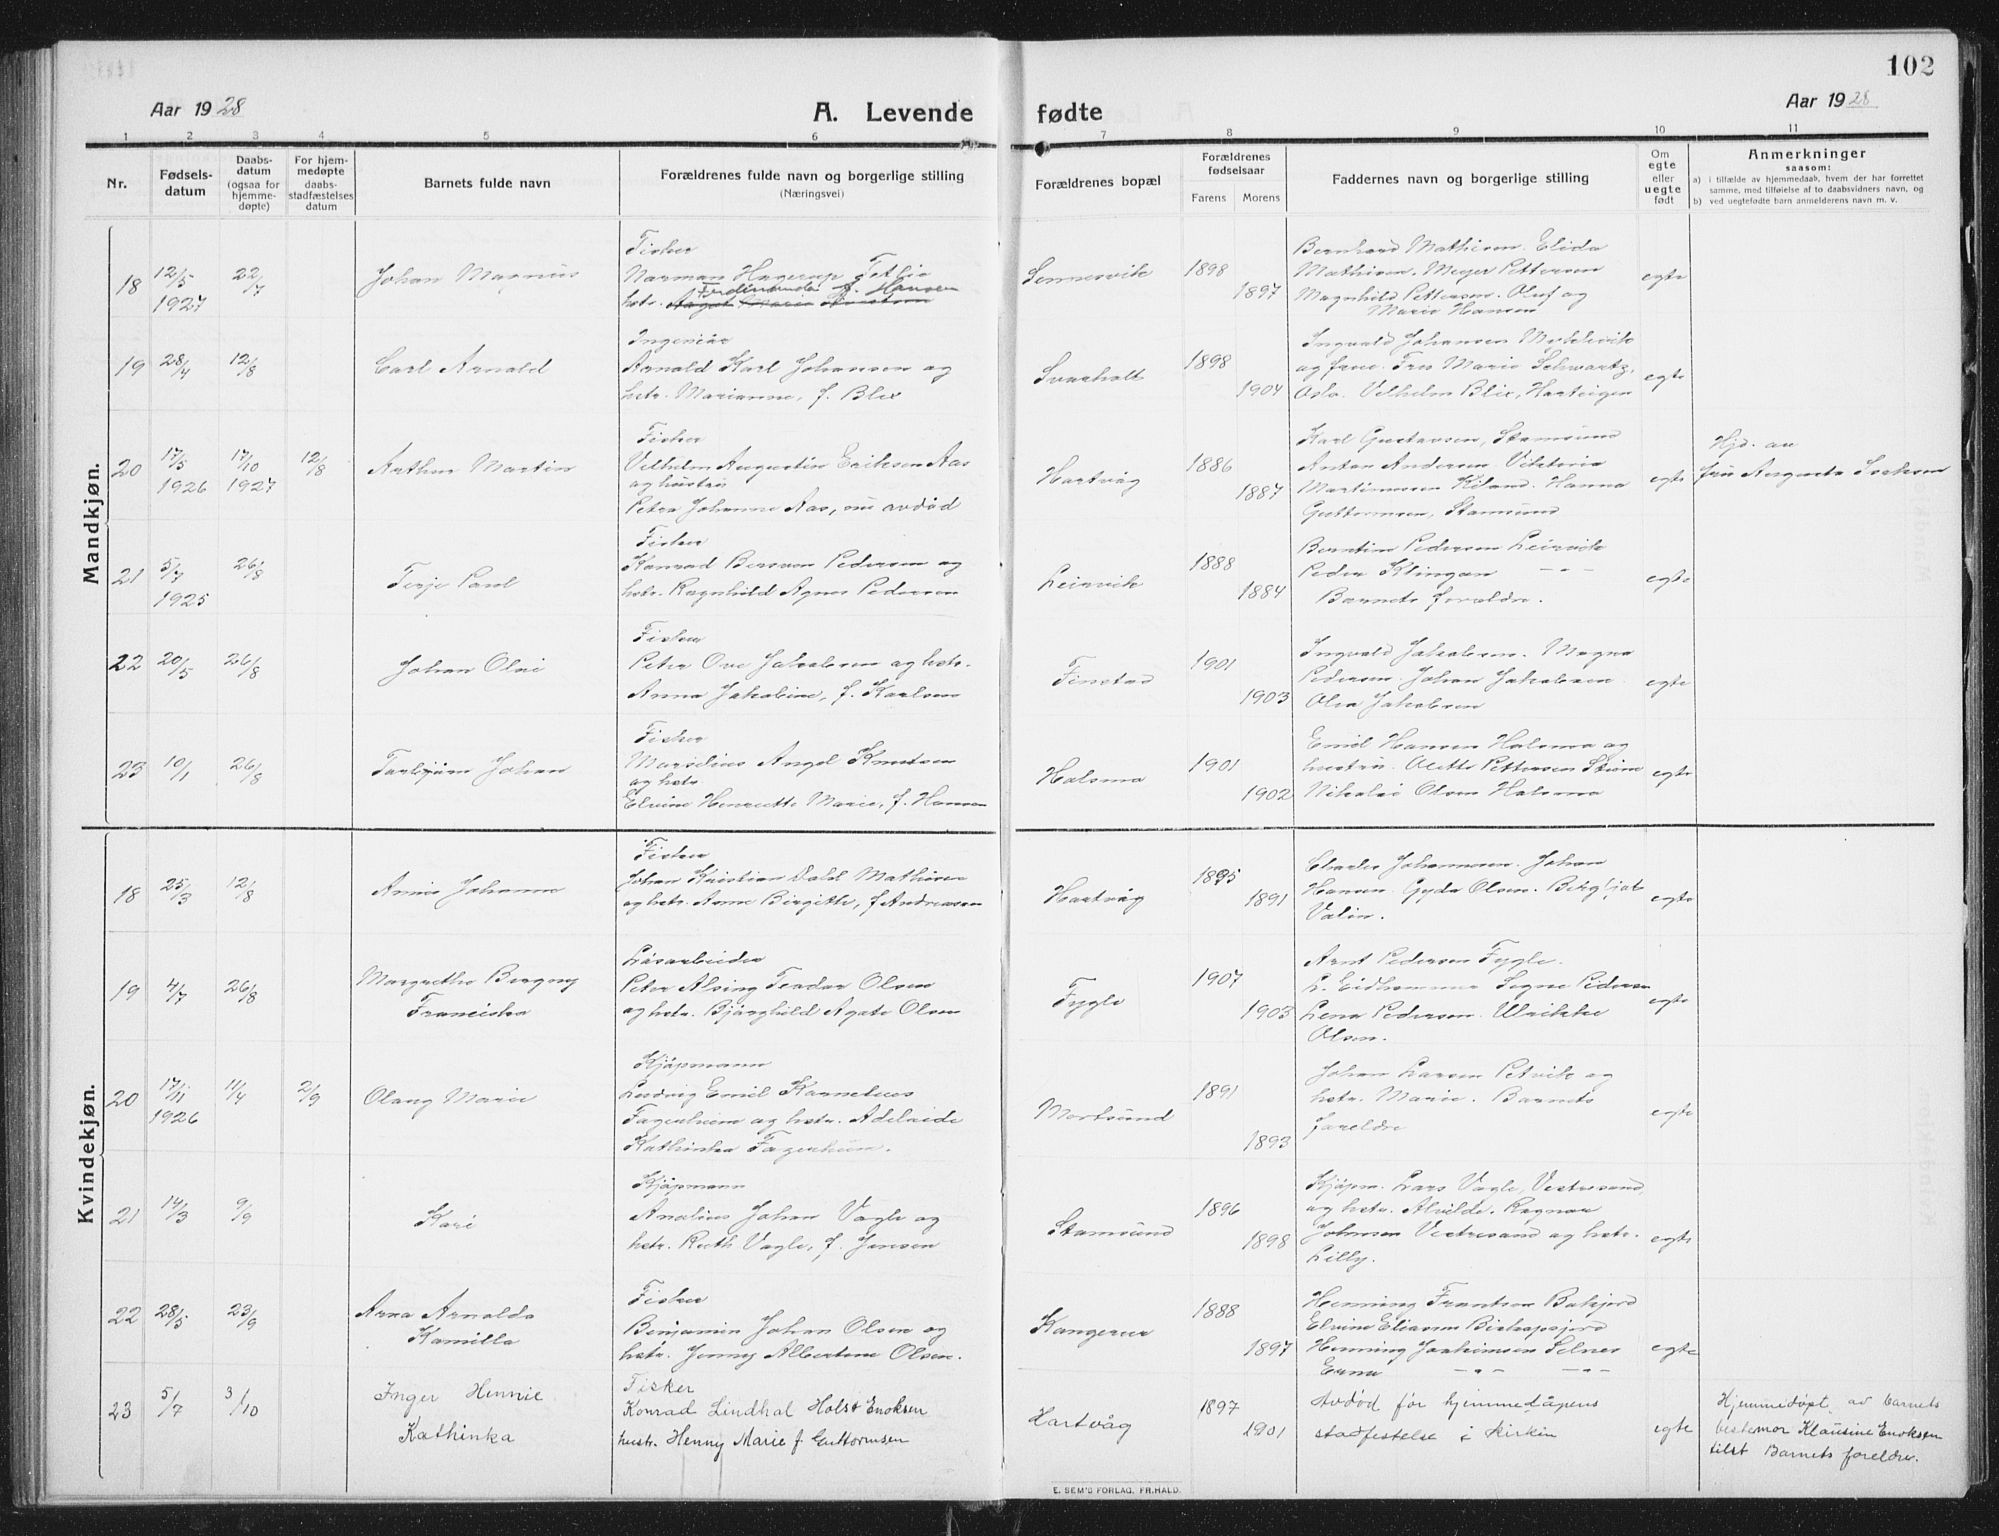 102
Aar 1928
A. Levende fødte
Aar 1928
1 2 3 4 5 6 7 8 9 10 11
Nr.
Fødselsdatum
Daabsdatum (ogsaa for hjemmedøpte)
For hjemmedøpte daabsstadfæstelses datum
Barnets fulde navn
Forældrenes fulde navn og borgerlige stilling
(Næringsvei)
Forældrenes bopæl
Forældrenes fødselsaar
Farens Morens
Faddernes navn og borgerlige stilling
Om egte eller uegte født
Anmerkninger
saasom:
a) i tilfælde av hjemmedaab, hvem der har forrettet
samme, med tilføielse af to daabsvidners navn, og
b) ved uegtefødte barn anmelderens navn m. v.
Mandkjøn.
18 12/5 1927 22/7
Johan Magnus
Fisker
Norman Hagerup
hstr. Ferdinanda f. Hansen
Sennesvik
1898 1897
Bernhard Mathisen. Elida
Mathisen. Meyer Pettersen
Magnhild Pettersen. Oluf og
Marie Hansen
egte
19 28/4 12/8
Carl Arnold
Ingeniør
Arnold Karl Johansen og
hstr. Marianne, f. Blix
Svarholt
1898 1904
Ingvald Johansen
og frue. Frk Marie Schwartz,
Oslo. Vilhelm Blix, Hartvigen
egte
20 17/5 1926 17/10 1927 12/8
Arthur Martin
Fisker
Vilhelm Augustin Eriksen Aas
og hustru
Petra Johanne Aas, nu avdød
Hartvåg
1886 1887
Karl Gustavsen, Stamsund
Anton Andersen. Viktoria
Martinussen Kiland. Hanna
Guttormsen, Stamsund
egte
Hjd. av
fru Augusta
21 5/7 1925 26/8
Terje Paul
Fisker
Konrad Bersven Pedersen og
hstr. Ragnhild Agnes Pedersen
Leirvik
1888 1884
Berntin Pedersen Leirvik
Peder Klingan —"—
Barnets forældre.
egte
22 20/5 26/8
Johan Olai
Fisker
Peter Ove Jakobsen og hstr.
Anna Jakobine, f. Karlsen
Finstad
1901 1903
Ingvald Jakobsen. Magna
Pedersen. Johan Jakobsen
Olea Jakobsen
egte
23 10/1 26/8
Torbjørn Johan
Fisker
Marselius Angel Knutsen
og hstr.
Elvine Henriette Marie, f. Hansen
Holsmo
1901 1902
Emil Hansen Holsmo og
hustru. Olette Pettersen Stene
Nikolai Olsen Holsmo
egte
Kvindekjøn.
18 25/3 12/8
Annie Johanne
Fisker
Johan Kristian Dahl Mathisen
og hstr. Anne Birgitte, f Andreasen
Hartvåg
1895 1891
Charles Johannesen. Johan
Hansen. Gyda Olsen. Bergljot
Valin.
egte
19 4/7 26/8
Margrethe Bergny
Franciska
Løsarbeider
Peter Alsing Teodor Olsen
og hstr. Bjørghild Agate Olsen
Fygle
1907 1903
Arnt Pedersen Fygle.
L. Eidhammer Signe Pedersen
Lena Pedersen. Ulrikke
Olsen.
egte
20 17/11 1926 11/4 2/9
Olaug Marie
Kjøpmann
Ludvig Emil Kornelius
Fagerheim og hstr. Adelaide
Kathinka Fagerheim.
Mortsund
1891 1893
Johan Larsen Petvik og
hstr. Marie. Barnets
foreldre
egte
21 14/3 9/9
Kari
Kjøpmann
Anelius Johan Vagle og
hstr. Ruth Vagle, f. Jensen
Stamsund
1896 1898
Kjøpm. Lars Vagle, Vestresand,
og hstr. Alvilde. Ragnar
Johnsen Vestresand og hstr.
Lilly.
egte
22 28/5 23/9
Arna Arnolda
Kamilla
Fisker
Benjamin Johan Olsen og
hstr. Jenny Albertine Olsen.
Kangerur
1888 1897
Henning Frantsen Bakjord
Elvine Eliassen
Henning Joakimsen Selnes
Erna —"— —"—
egte
23 5/7 3/10
Inger Hennie
Kathinka
Fisker
Konrad Lindhal Holst Enoksen
hustr. Henny Marie f Guttormsen
Hartvåg
1897 1901
Avdød før hjemmedåpens
stadfestelse i kirken
egte
Hjemmedøpt av barnets
bestemor Klausine Enoksen
tilst Barnets foreldre.
E. SEM'S FORLAG, FR.HALD.